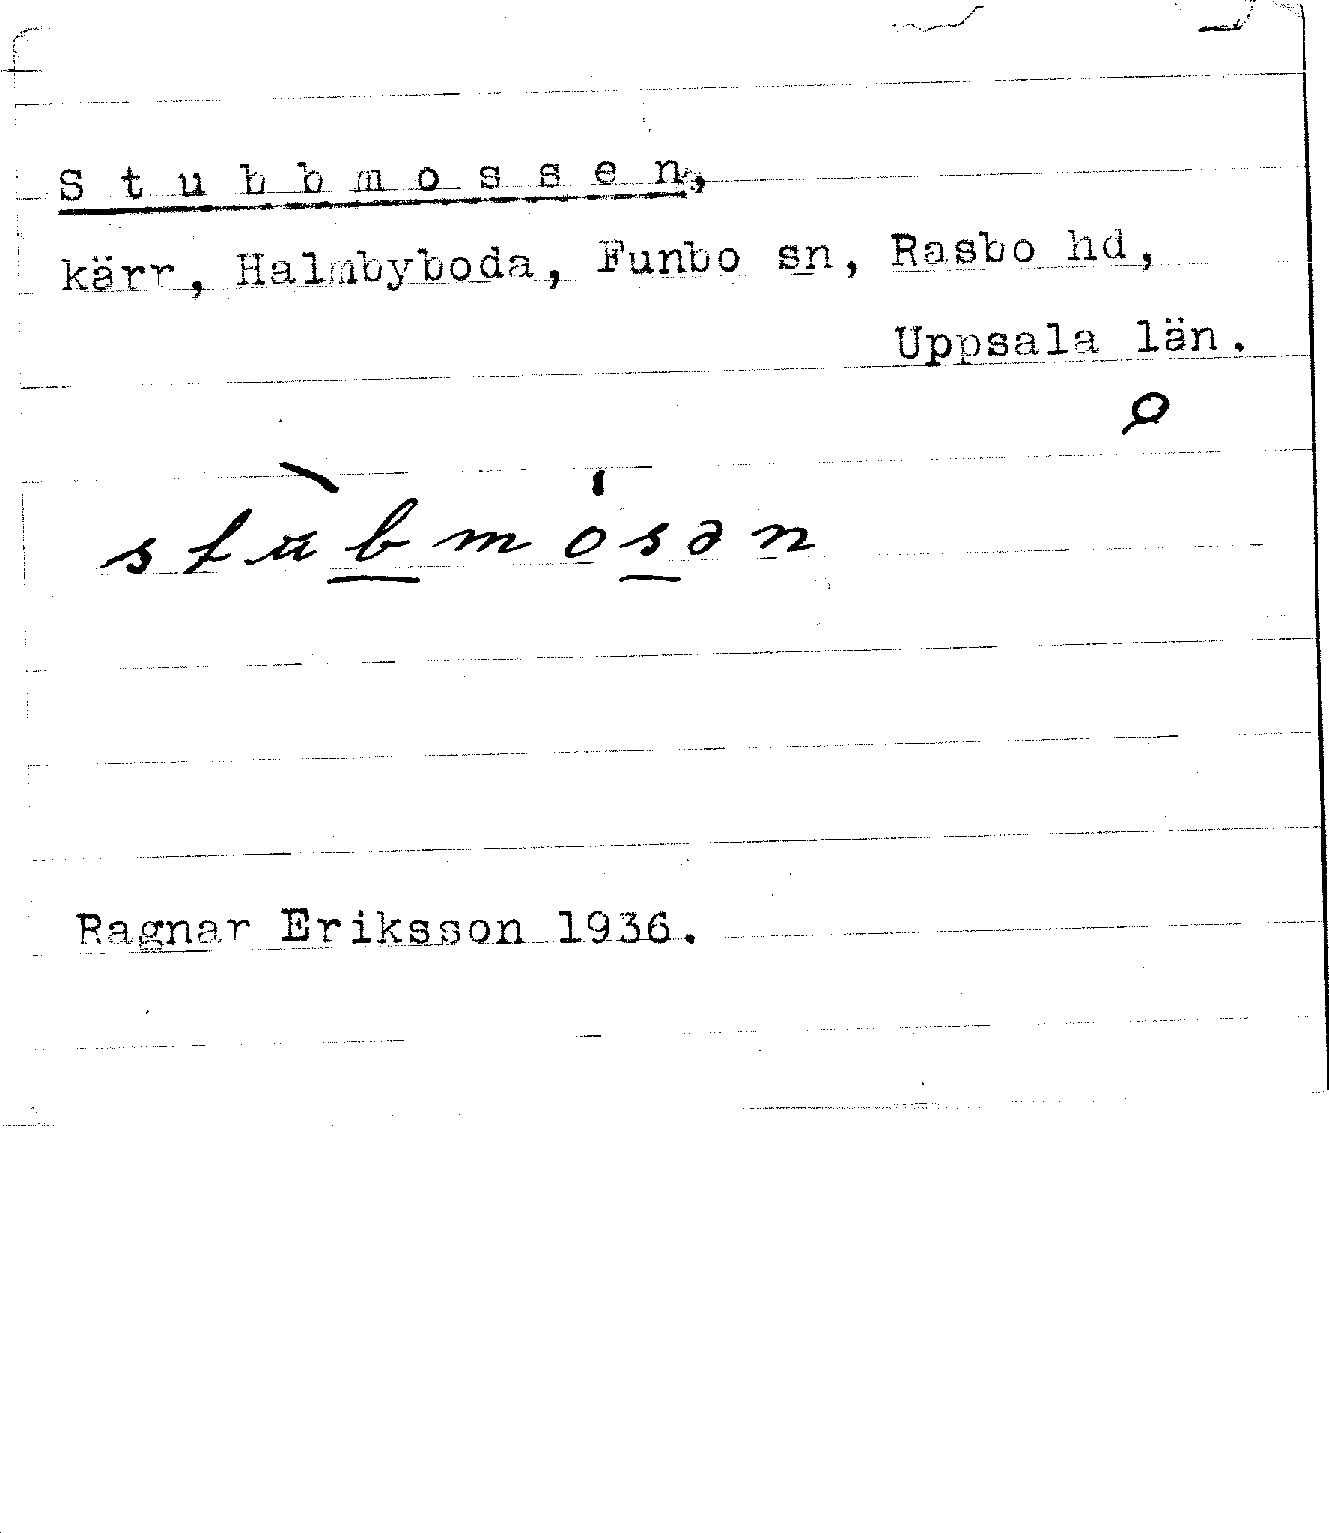 Stubbmossen,
kärr, Halmbyboda, Funbo sn, Rasbo hd,
Uppsala län.
stu̇bmosən
Ragnar Eriksson 1936.